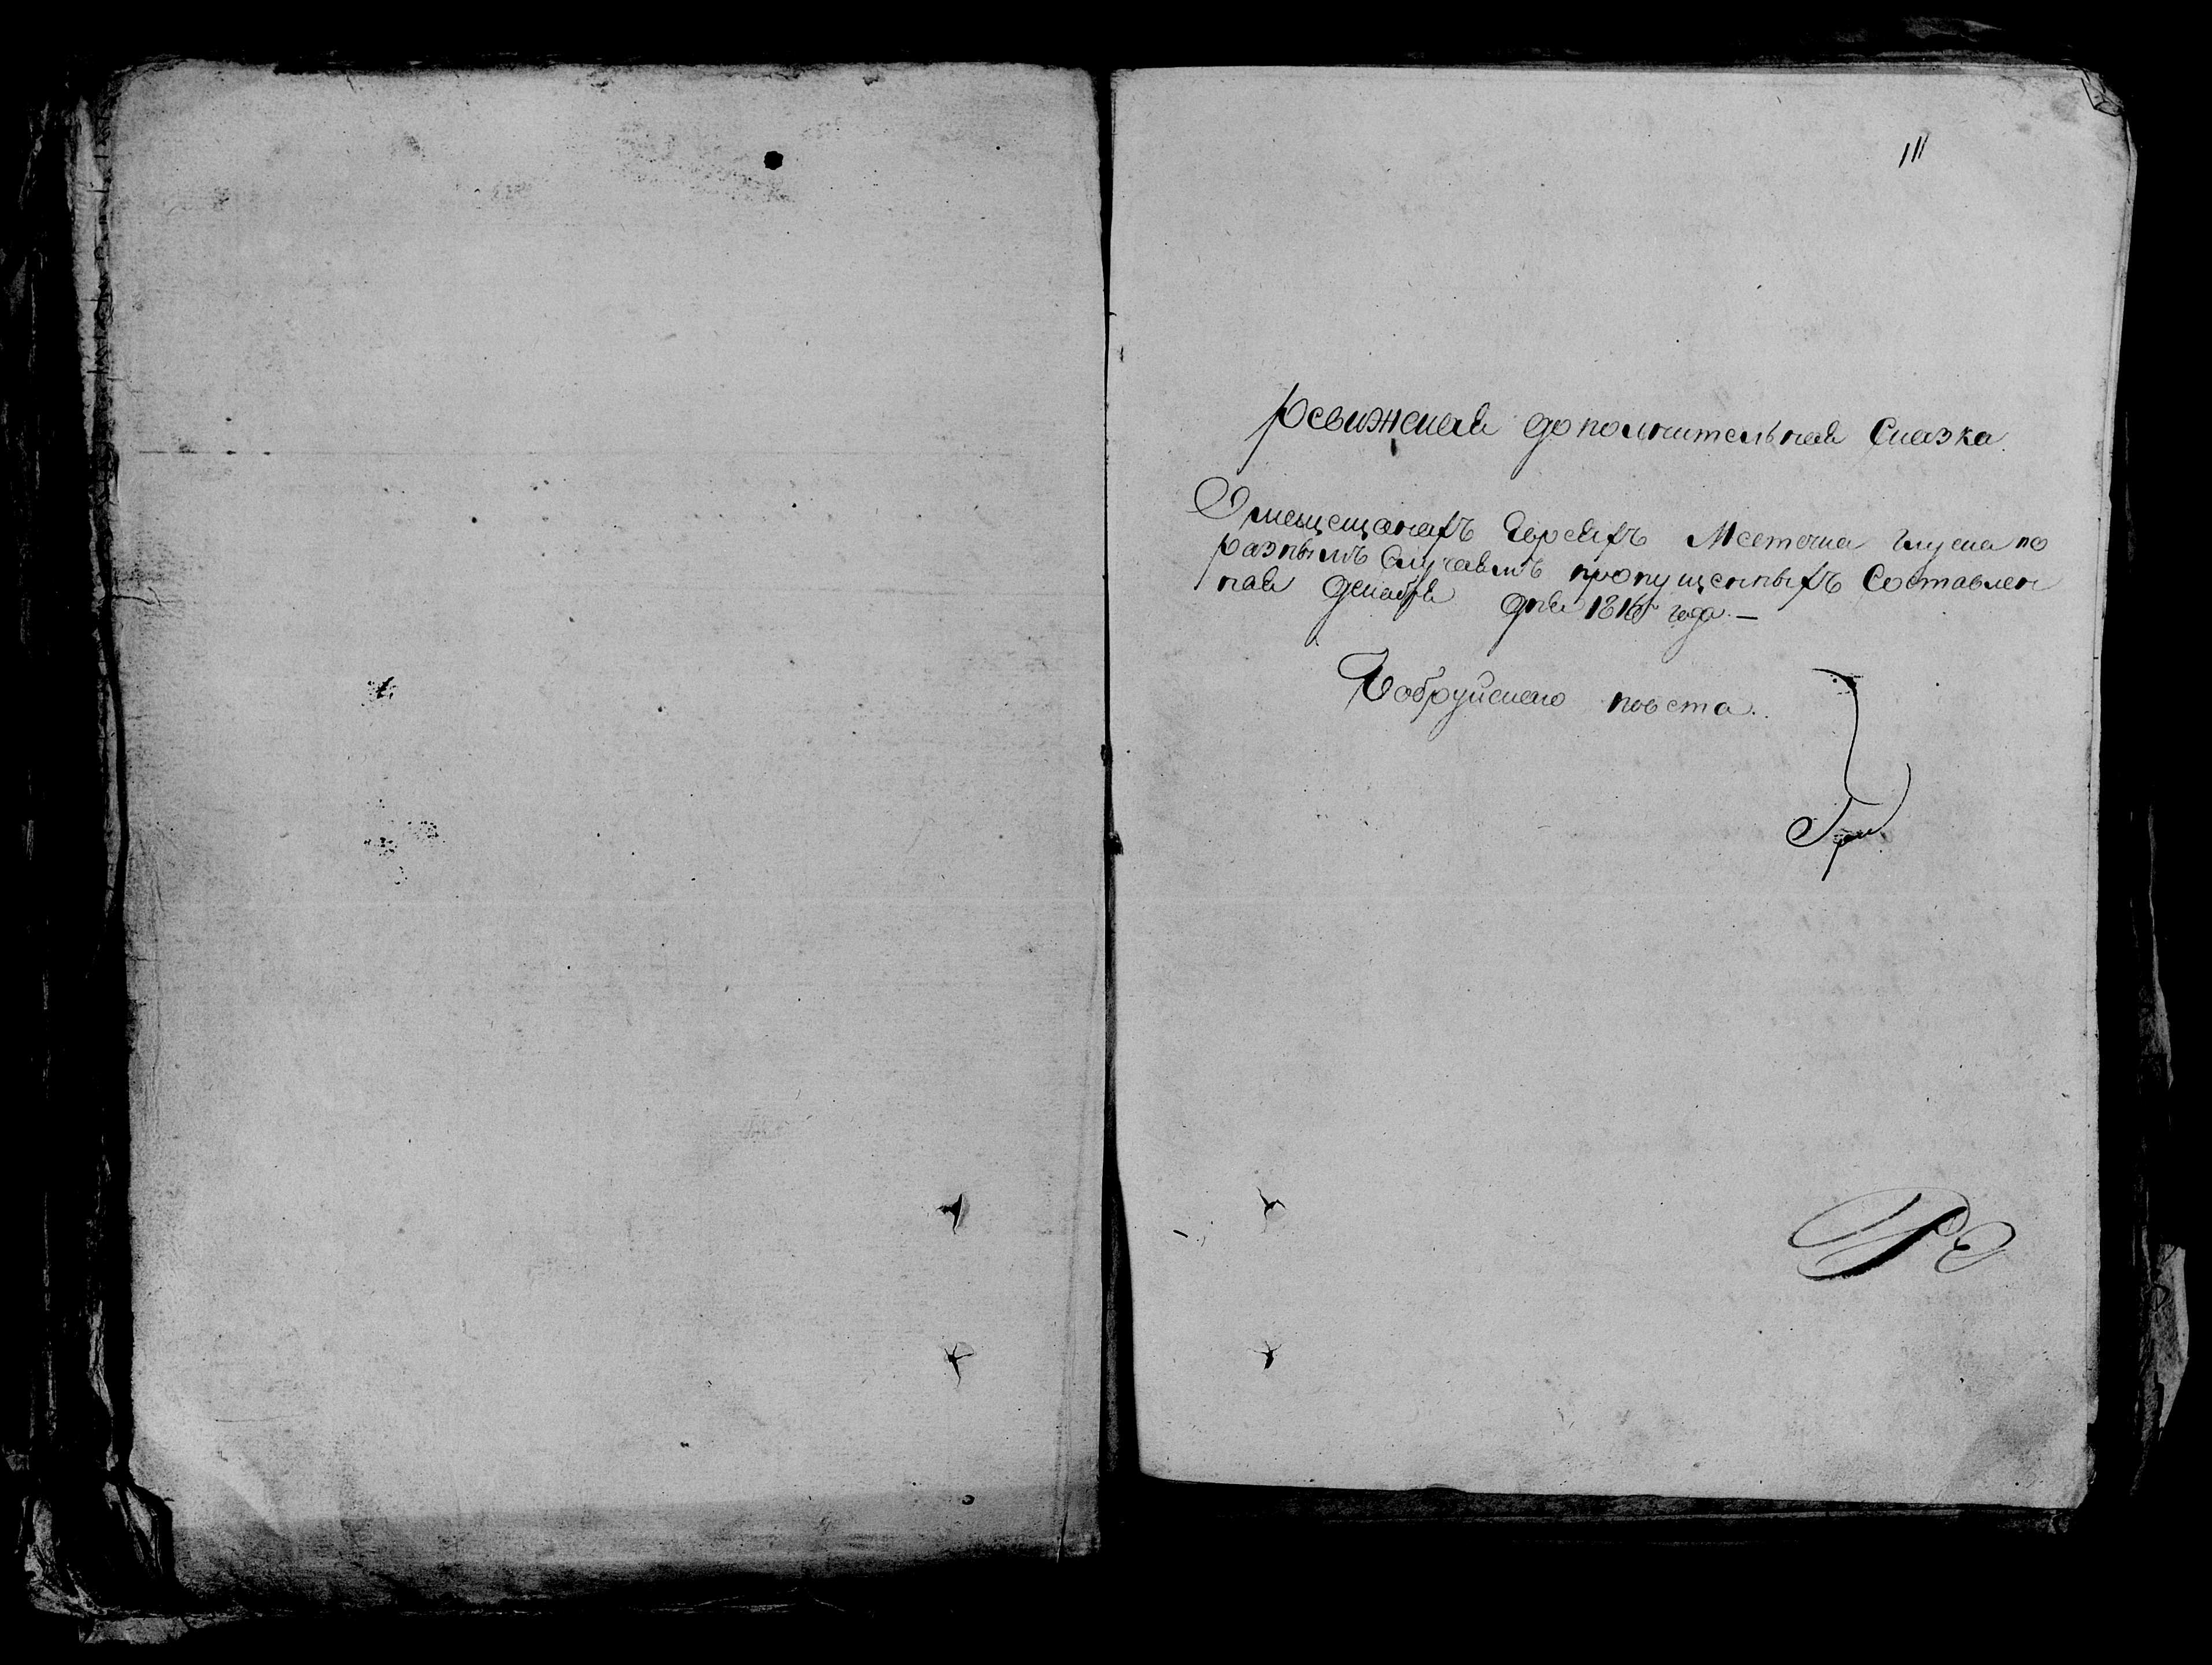 111
Ревижская дополнительная Сказка
О мещещанахъ Евреяхъ Местечка Глуска по
разнымъ Случаямъ пропущенныхъ Составлен
ная Декабря дня 1816 года. —
Бобруйскаго повета.